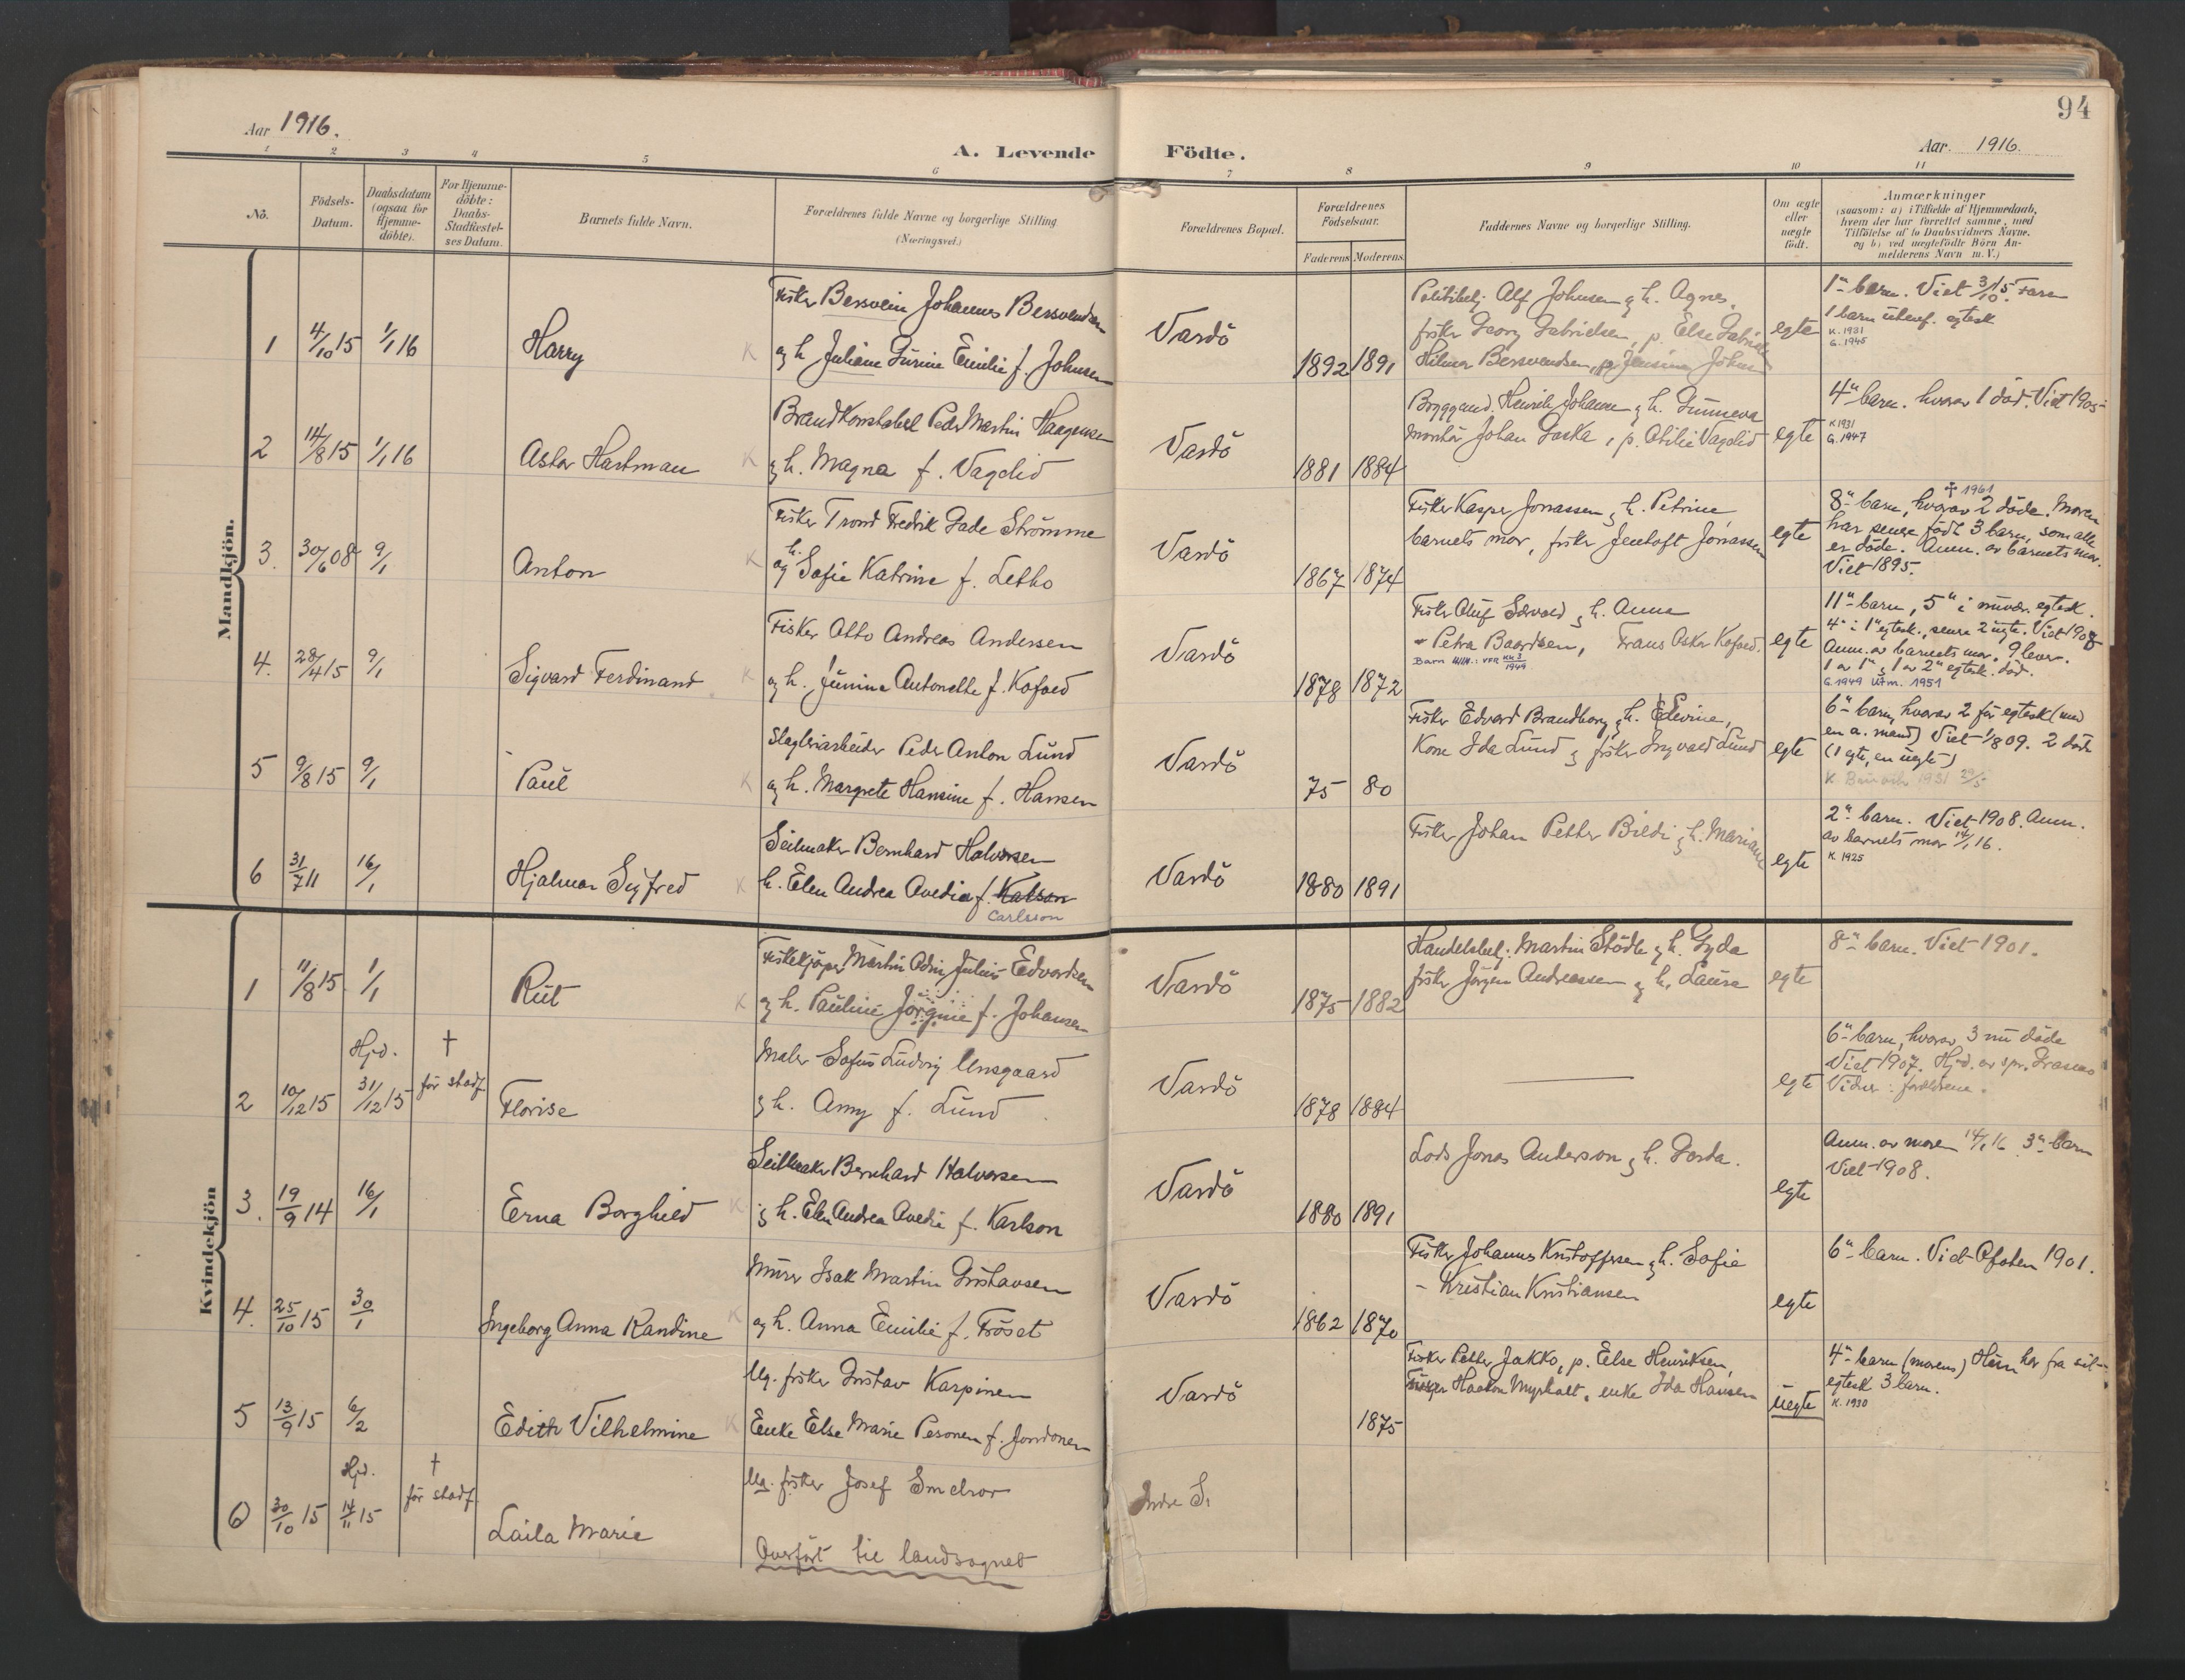 94
Aar 1916.
A. Levende Födte.
Aar. 1916.
1 2 3 4 5 6 7 8 9 10 11
No.
Födsels-
Datum.
Daabsdatum
(ogsaa for
Hjemme-
döbte).
For Hjemme-
döbte:
Daabs-
Stadfæstel-
ses Datum.
Barnets fulde Navn.
Forældrenes fulde Navne og borgerlige Stilling
(Næringsvei.)
Forældrenes Bopæl.
Forældrenes
Födselsaar.
Faderens Moderens
Faddernes Navne og borgerlige Stilling.
Om ægte
eller
uægte
födt.
Anmærkninger
(saasom: a) i Tilfælde af Hjemmedaab,
hvem der har forrettet samme, med
Tilföielse af to Daabsvidners Navne.
og b) ved uægtefödte Börn An-
melderens Navn m. V.)
Mandkjön.
1 4/10 15 1/1 16 Harry
Fisker Bersvein Johannes Bersvendsen
og h. Juliane Turine Emilie f. Johnsen
Vardö 1892 1891
Politibetj. Alf Johnsen g h. Agnes.
fisker Georg Gabrielsen, p. Else Gabriels
Hilmar Bersvendsen, p. Jensine Johns
egte
1ste barn. Viet 3/10 15. Faren
1 barn utenf. egtesk
K. 1931
G. 1945
2 14/8 15 1/1 16 Astor Hartman
Brandkonstabel Peder Martin Haagensen
g h. Magna f. Vagelid
Vardö 1881 1884
Bryggearb. Henrik Johansen g h. Gunneva
Montör Johan Laska, p. Otilie Vagelid
egte
4de barn. hvorav 1 död. Viet 1905
K 1931
G. 1947
3. 30/6 08 9/1 Anton
Fisker Trond Fredrik Gade Strömme
og h. Sofie Katrine f. Letho
Vardö 1867 1874
Fisker Kasper Jonassen g h. Petrine
barnets mor, fisker Jentoft Jonassen
egte
✝ 1961
8de barn, hvorav 2 döde. Moren
har senere född 3 barn, som alle
er döde. Anm. av barnets mor.
Viet 1895.
4. 28/4 15 9/1 Sigvard Ferdinand
Fisker Otto Andreas Andersen
og h. Junine Antonette f. Kofoed
Vardö 1878 1872
Fisker Oluf g h. Anna
- Petra Baardsen, Frans Oskar Kofoed.
egte
11te barn, 5te i nuvær. egtesk.
4de i 1ste egtesk., senere 2 uegte. Viet 1908
Anm. av barnets mor. 9 lever.
1 av 1ste g 1 av 2det egtesk. död.
G. 1949 Utm. 1951
5 9/8 15 9/1 Paul
Slagteriarbeider Peder Anton Lund
og h. Margrete Hansine f. Hansen
Vardö 75 80
Fisker Edvard Brandborg g h. Edevine,
Kone Ida Lund g fisker Ingvald Lund
egte
6te barn, hvorav 2 för egtesk (med
en a. mand) Viet 1/8 09. 2 döde
(1 egte, en uegte)
6 31/7 11 16/1 Hjalmar Sigfred
Seilmaker Bernhard Halvorsen
h. Elen Andrea Avedia f. Karlson
Carlsson
Vardö 1880 1891
Fisker Johan Petter Bildi g h. Mariane
egte
2det barn. Viet 1908. Anm.
av barnets mor 14/1 16.
K. 1925
Kvindekjön
1 11/8 15 1/1 Rut
Fiskekjöper Martin Odin Julius Edvardsen
og h. Pauline Jörgine f. Johansen
Vardö 1875 1882
Handelsbetj. Martin Stödle g h. Gyda
fisker Jörgen Andreassen g h. Laura
egte
8de barn. Viet 1901.
2 10/12 15 Hjd. 31/12 15 † för stadf. Florise
Maler Sofus Ludvig Unsgaard
g h. Amy f. Lund
Vardö 1878 1884
egte
6te barn, hvorav 3 nu döde
Viet 1907. Hjd. av spr. Graseas
Vidner: forældrene.
3. 19/9 14 16/1 Erna Borghild
Seilmaker Bernhard Halvorsen
g h. Elen Andrea Avedia f. Karlson
Vardö 1880 1891
Lods Jonas Anderson g h. Gerda.
egte
Anm. av moren 14/1 16 3die barn
Viet 1908.
4. 25/10 15 30/1 Ingeborg Anna Randine
Murer Isak Martin Gustavsen
og h. Anna Emilie f. Fröset
Vardö 1862 1870
Fisker Johannes Kristoffersen g h. Sofie
- Kristian Kristiansen
egte
6te barn. Viet Ofoten 1901.
5 13/9 15 6/2 Edith Vilhelmine
Ug. fisker Gustav Karpinen
Enke Else Marie Pesonen f. Jondonen
Vardö 1875
Fisker Petter Jakko, p. Else Henriksen,
Haakon Myrholt, enke Ida Hansen
uegte
4de barn (morens) Hun har fra sit
egtesk 3 barn.
K. 1930
6 30/10 15 Hjd. 14/11 15 † för stadf. Laila Marie
Ug. fisker Josef Smelror
Indre S.
Overfört til landsognet